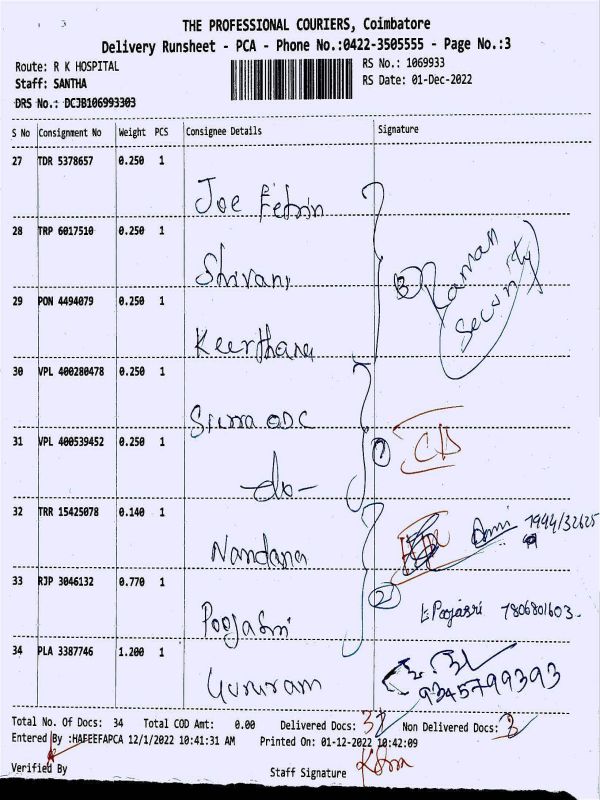 THE PROFESSIONAL COURIERS, Coimbatore
Delivery Runsheet - PCA - Phone No.:0422-3505555 - Page No.:3
Route: R K HOSPITAL
RS No.: 1069933
Staff: SANTHA
RS Date: 01-Dec-2022
DRS No.: DCJB106993303
S No Consignment No Weight PCS Consignee Details Signature
27 TDR 5378657 0.250 1
Joe
28 TRP 6017510 0.250 1
Shivani
3 Raman
Security
29 PON 4494079 0.250 1
Keerthana
30 VPL 400280478 0.250 1
31 VPL 400539452 0.250 1
-do-
32 TRR 15425078 0.140 1
1944/32625
Nandana
33 RJP 3046132 0.770 1
2
Poojasri 7806801603
Poojasri
34 PLA 3387746 1.200 1
Gururam
9345799393
Total No. Of Docs: 34 Total COD Amt: 0.00 Delivered Docs: Non Delivered Docs: 3
Entered By :HAFEEFAPCA 12/1/2022 10:41:31 AM Printed On: 01-12-2022 10:42:09
Verified By
Staff Signature